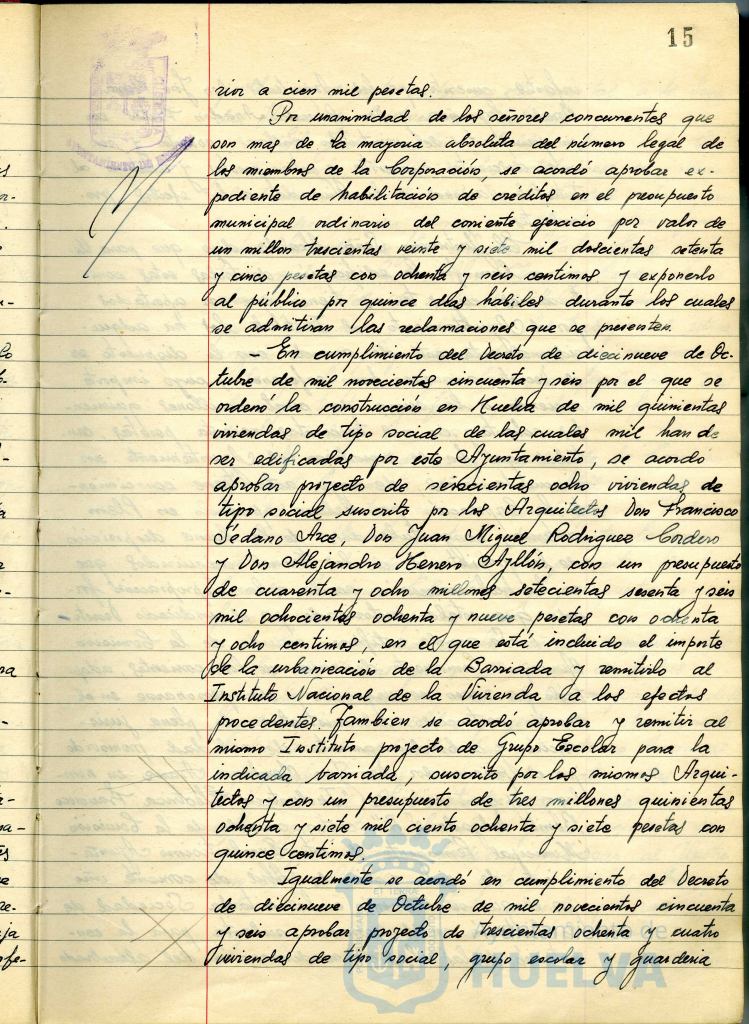 15
rior a cien mil pesetas.
Por unanimidad de los señores concurrentes que
son mas de la mayoria absoluta del número legal de
los miembros de la Corporación, se acordó aprobar ex-
pediente de habilitación de créditos en el presupuesto
municipal ordinario del corriente ejercicio por valor de
un millon trescientas veinte y siete mil doscientas setenta
y cinco pesetas con ochenta y seis centimos y exponerlo
al público por quince dias hábiles durante los cuales
se admitiran las reclamaciones que se presenten.
- En cumplimiento del Decreto de diecinueve de Oc-
tubre de mil novecientos cincuenta y seis por el que se
ordenó la construcción en Huelva de mil quinientas
viviendas de tipo social de las cuales mil han de
ser edificadas por este Ayuntamiento, se acordó
aprobar proyecto de seiscientas ocho viviendas de
tipo social suscrito por los Arquitectos Don Francisco
Sedano Arce, Don Juan Miguel Rodriguez Cordero
y Don Alejandro Herrero Ayllón, con un presupuesto
de cuarenta y ocho millones setecientas sesenta y seis
mil ochocientas ochenta y nueve pesetas con ochenta
y ocho centimos, en el que está incluido el importe
de la urbanización de la Barriada y remitirlo al
Instituto Nacional de la Vivienda a los efectos
procedentes. Tambien se acordó aprobar y remitir al
mismo Instituto proyecto de Grupo Escolar para la
indicada barriada, suscrito por los mismos Arqui-
tectos y con un presupuesto de tres millones quinientas
ochenta y siete mil ciento ochenta y siete pesetas con
quince centimos.
Igualmente se acordó en cumplimiento del Decreto
de diecinueve de Octubre de mil novecientos cincuenta
y seis aprobar proyecto de trescientas ochenta y cuatro
viviendas de tipo social, grupo escolar y guarderia
HUELVA